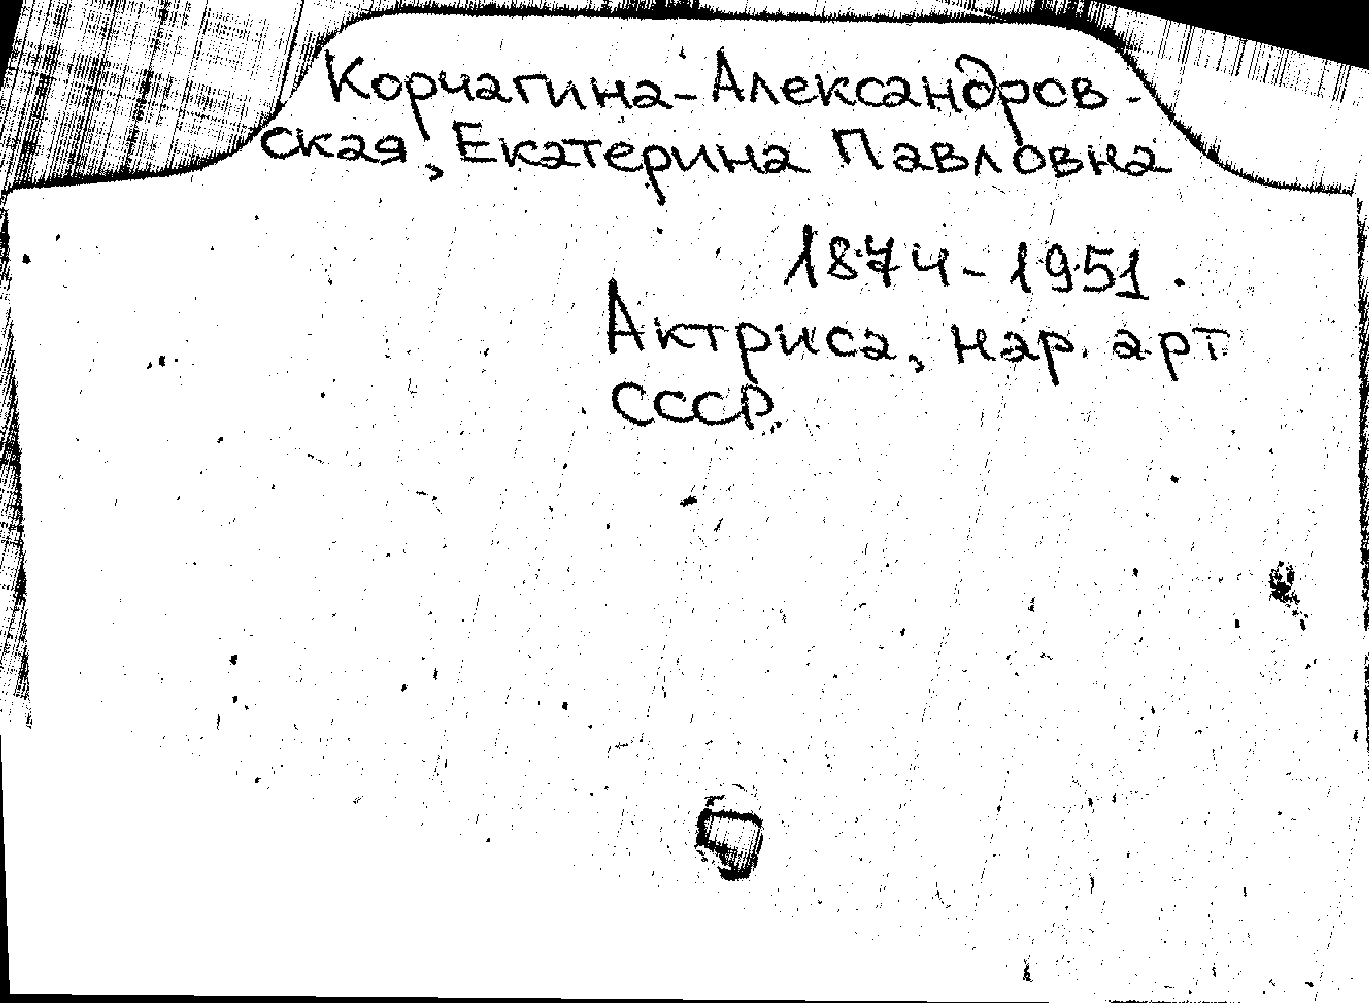 Корчагина-Александров-
ская, Екатерина Павловна
1874-1951.
Актриса, нар. арт
СССР.